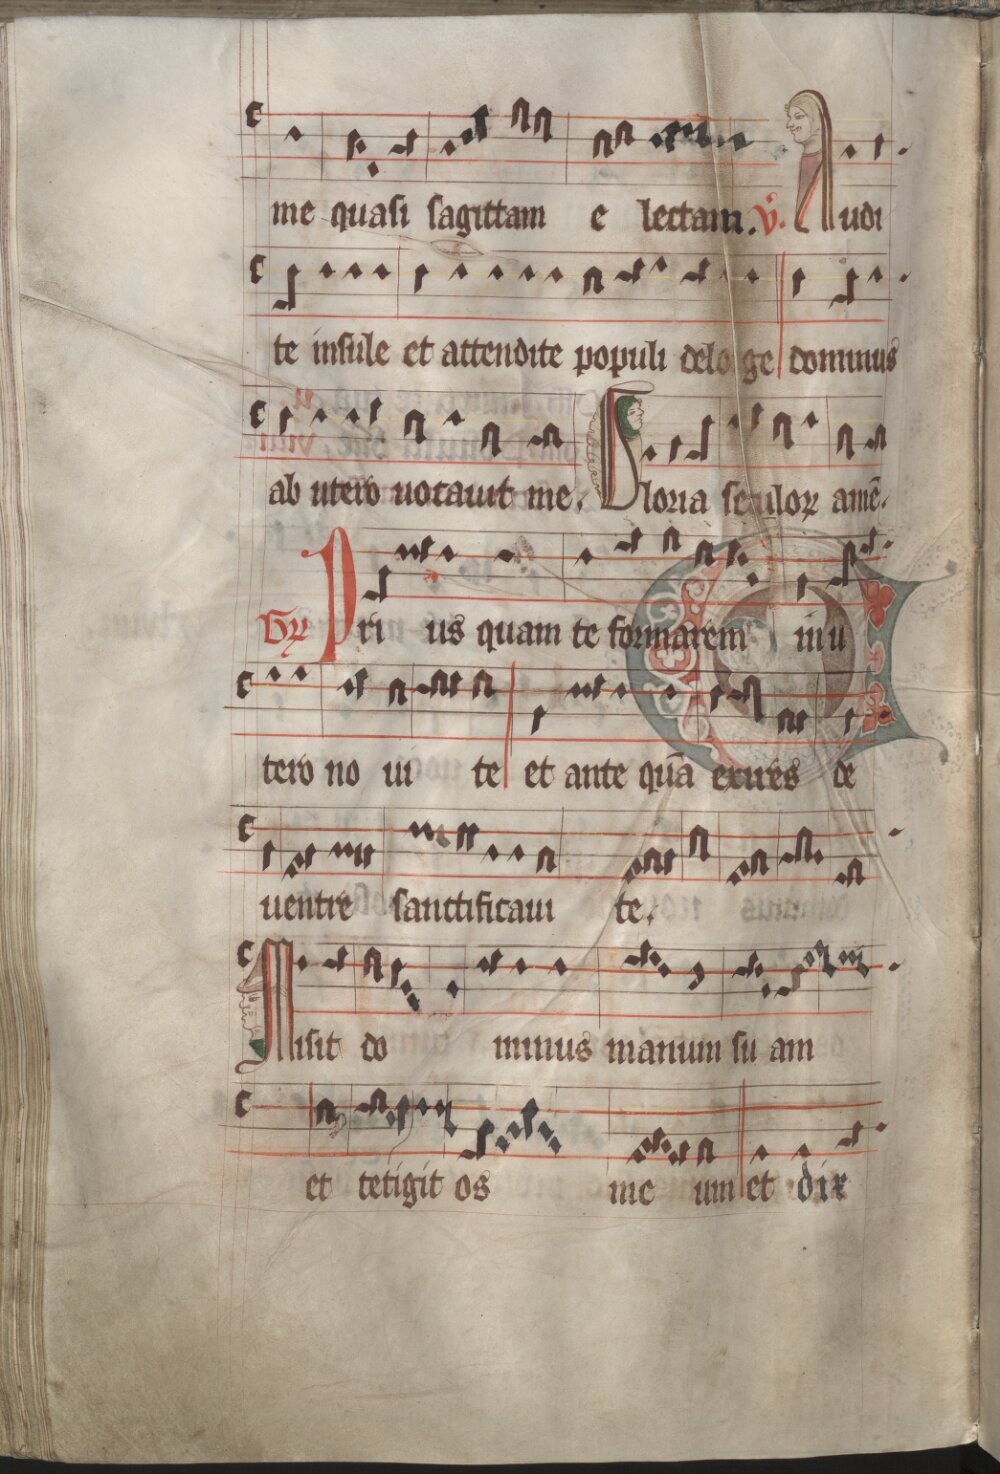 me quasi sagittam e lectam. v̇. Audi
te insule et attendite populi delo ge dominus
ab utero uocauit me. Gloria seculoꝝ amē.
Gꝝ Pri us quam te formarem in u
tero no ui te et ante quā exires de
uentre sanctificaui te.
Misit do minus manum su am
et tetigit os me um et dix